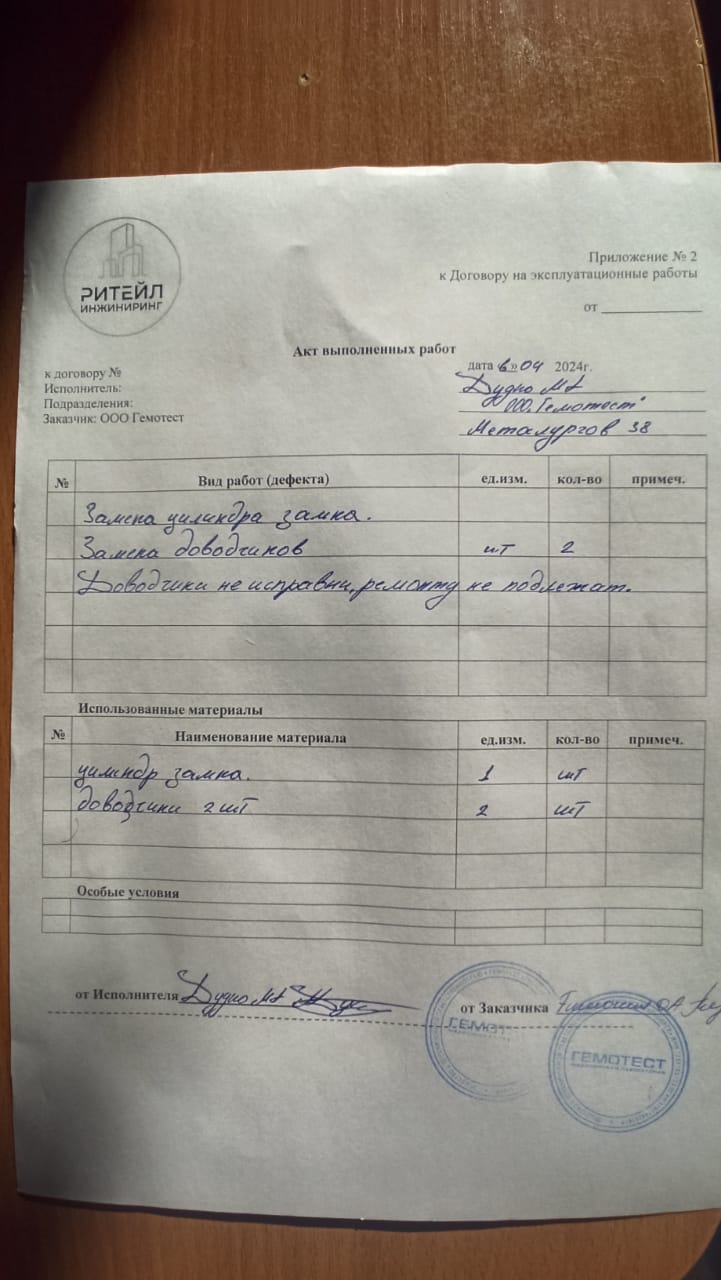 РИТЕЙЛ
ИНЖИНИРИНГ
Приложение № 2
к Договору на эксплуатационные работы
от ____________
Акт выполненных работ
к договору №
дата 6 » 04 2024г.
Исполнитель: Дудко МА
Подразделения: ООО "Гемотест"
Заказчик: ООО Гемотест Металургов 38
№ Вид работ (дефекта) ед.изм. кол-во примеч.
Замена цилиндра замка.
Замена доводчиков шт 2
Доводчики не исправны, ремонту не подлежат.
Использованные материалы
№ Наименование материала ед.изм. кол-во примеч.
цилиндр замка. 1 шт
доводчики 2 шт 2 шт
Особые условия
от Исполнителя Дудко МА
от Заказчика
ГЕМОТ
ГЕМОТЕСТ